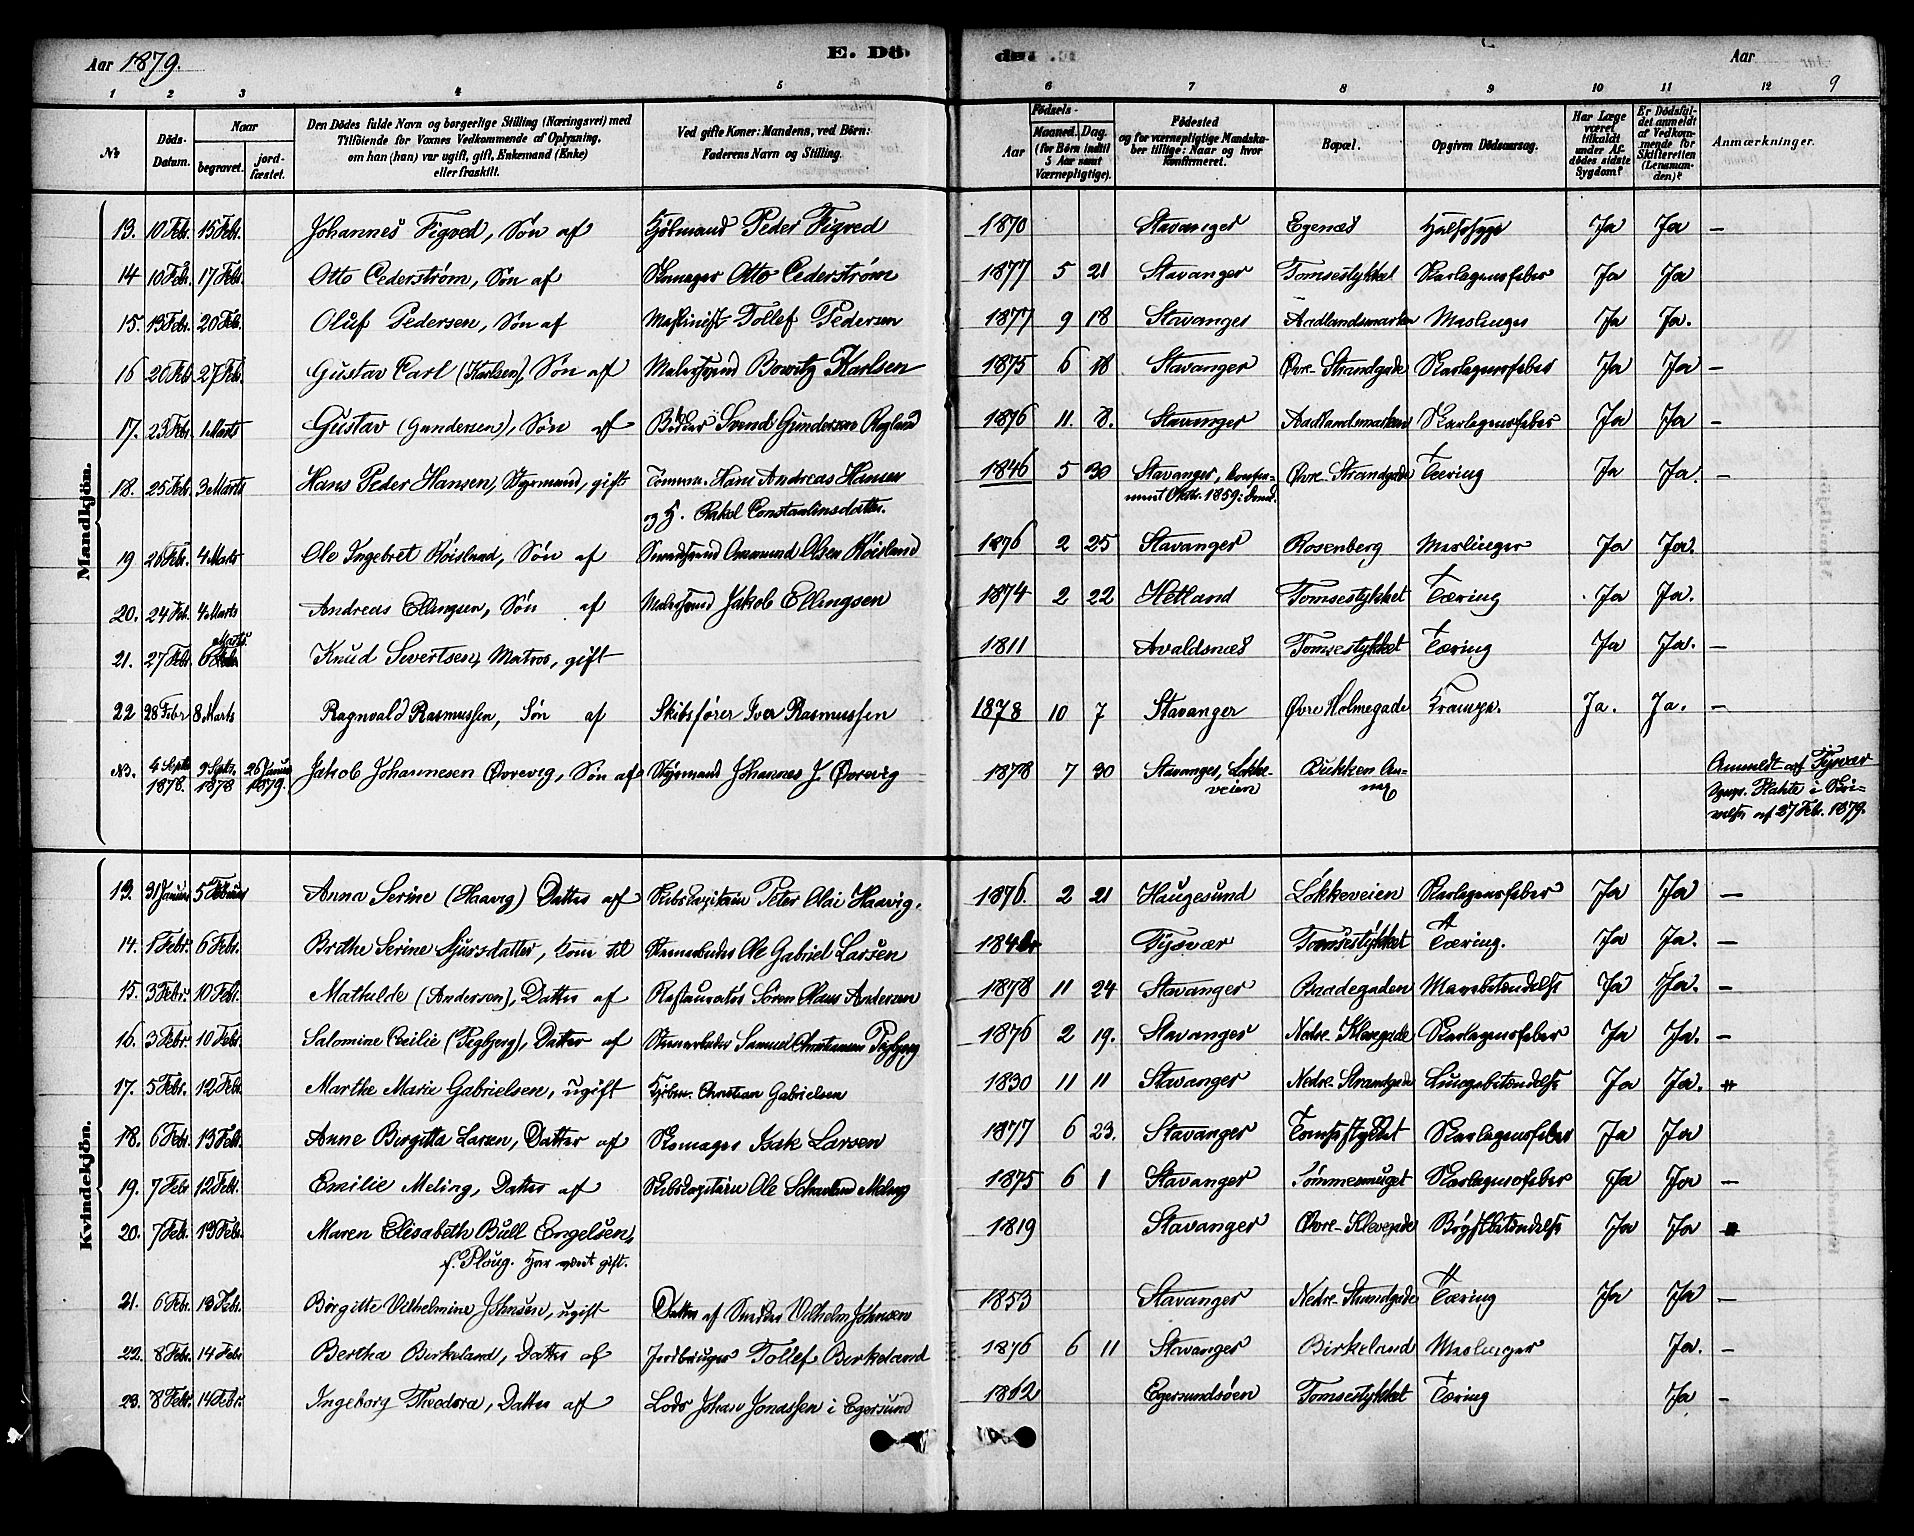 Aar 1879. E. Dö- de. Aar 9
1 2 3 4 5 6 7 8 9 10 11 12
No Döds-Datum. Naar begravet. jord-fæstet. Den Dödes fulde Navn og borgerlige Stilling (Næringsvei) med Tilföiende for Voxnes Vedkommende af Oplysning, om han (hun) var ugift, gift, Enkemand (Enke) eller fraskilt. Ved gifte Koner: Mandens, ved Börn: Faderens Navn og Stilling. Födsels- Aar Maaned. Dag. (for Börn indtil 5 Aar samt Værnepligtige). Födested og for værnepligtige Mandskaber tillige: Naar og hvor konfirmeret. Bopæl. Opgiven Dödsaarsag. Har Læge været tilkaldt under Afdödes sidste Sygdom? Er Dödsfaldet anmeldt af Vedkommende for Skifteretten (Lensmanden)? Anmærkninger.
Mandkjön.
13. 10 Febr. 15 Febr. Johannes Figved, Søn af Kjøbmand Peder Figved 1870 Stavanger Egenæs Halssyge Ja Ja —
14 10 Febr. 17 Febr. Otto Cederstrøm, Søn af Skomager Otto Cederstrøm 1877 5 21 Stavanger Tomsestykket Skarlagensfeber Ja Ja
15. 13 Febr. 20 Feb. Oluf Pedersen, Søn af Maskinist Tollef Pedersen 1877 9 18 Stavanger Aadlandsmarken Meslinger Ja Ja.
16 20 Feb 27 Feb. Gustav Carl (Karlsen), Søn af Malersvend Bowitz Karlsen 1875 6 18 Stavanger Øvre Strandgade Skarlagensfeber Ja Ja —
17. 23 Febr. 1 Marts Gustav (Gundersen), Søn af Bødker Svend Gundersen Rogland 1876 11. 8. Stavanger Aadlandsmarken Skarlagensfeber Ja Ja —
18. 25 Feb. 3 Marts Hans Peder Hansen, Styrmand, gift Tømmerm. Hans Andreas Hansen 1846 5 30 Stavanger, konfir- Øvre Strandgade Tæring Ja Ja. —
og H. Rakel Constantinsdatter. meret Oktbr. 1859:
19 26 Febr. 4 Marts Ole Ingebret Röisland, Søn af Smedsvend Aanmund Olsen Röisland 1876 2 25 Stavanger Rosenberg Meslinger Ja Ja.
20. 24 Feb. 4 Marts Andreas Ellingsen, Søn af Malersvend Jakob Ellingsen 1874 2 22 Hetland Tomsestykket Tæring Ja Ja.
21. 27 Feb. 6 Marts Knud Sivertsen, Matros, gift 1811 Avaldsnæs Tomsestykket Tæring Ja Ja. —
22 28 Febr 8 Marts Ragnvald Rasmussen, Søn af Skibsfører Iver Rasmussen 1878 10 7 Stavanger Øvre Holmegade Krampe. Ja. Ja. —
NB. 4 Septr 1878. 9 Septr. 1878 26 Januar 1879. Jakob Johannesen Øvrevig, Søn af Styrmand Johannes J. Øvrevig 1878 7 30 Stavanger, Løkkeveien Anmeldt af Tysvær
af 27 Feb. 1879.
Kvindekjön.
13. 31 Januar 5 Februar Anna Serine (Haavig) Datter af Skibskapitain Peter Olai Haavig. 1876. 2 21 Haugesund Løkkeveien Skarlagensfeber Ja Ja —
14. 1 Febr. 6 Febr. Brithe Serine Sjursdatter, Kone til Stenarbeider Ole Gabriel Larsen Tysvær Tomsestykket Tæring. Ja Ja. —
15. 3 Febr. 10 Feb. Mathilde (Andersen), Datter af Restauratør Søren Hans Andersen 1878 11 24 Stavanger Baadegaden Mavebetændelse Ja Ja. —
16. 3 Febr 10 Feb. Salomine Cecilie (Tegbjerg), Datter af Stenarbeider Samuel Christiansen Tegbjerg 1876 2 19. Stavanger Nedre Klevegade Skarlagensfeber Ja Ja. —
17. 5 Febr. 12 Feb. Marthe Marie Gabrielsen, ugift Kjøbm. Christian Gabrielsen 1830 11 11 Stavanger Nedre Strandgade Lungebetændelse Ja Ja.
18. 6 Febr. 13 Feb. Anne Birgitta Larsen, Datter af Skomager Isak Larsen 1877 6 23. Stavanger Tomsestykket Skarlagensfeber Ja Ja
19. 7 Febr 12 Feb. Emilie Meling, Datter af Skibskapitain Ole Meling 1875 6 1 Stavanger Tømmersmuget Skarlagensfeber Ja Ja —
20. 7 Feb. 13 Feb. Maren Elisabeth Bull Engelsen, 1819 Stavanger Øvre Klevegade Brystbetændelse Ja Ja
f. Ploug. Har været gift.
21. 6 Feb. 13 Feb. Birgitte Vilhelmine Johnsen, ugift Datter af Snedker Vilhelm Johnsen 1853 Stavanger Nedre Strandgade Tæring Ja Ja —
22. 8 Feb. 14 Feb Bertha Birkeland, Datter af Jordbruger Tollef Birkeland 1876 6 11 Stavanger Birkeland Meslinger Ja. —
23. 8 Febr. 14 Febr. Ingeborg Theodora, Datter af Lods Johan Jonassen i Egersund 1862 Egersundsøen Tomsestykket Tæring Ja —